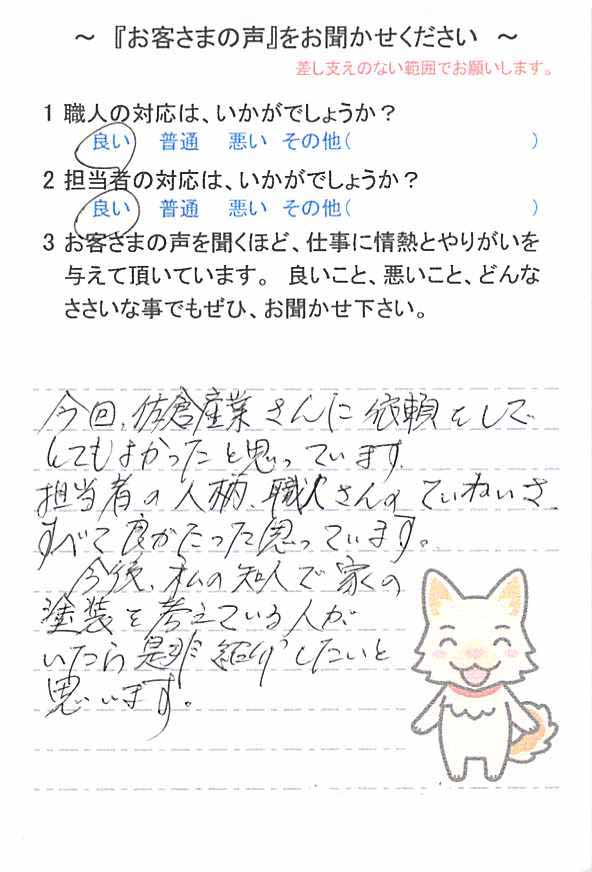 ～ 『お客さまの声』をお聞かせください ～
差し支えのない範囲でお願いします。
1 職人の対応は、いかがでしょうか？
良い 普通 悪い その他( )
2 担当者の対応は、いかがでしょうか？
良い 普通 悪い その他( )
3 お客さまの声を聞くほど、仕事に情熱とやりがいを
与えて頂いています。 良いこと、悪いこと、どんな
ささいな事でもぜひ、お聞かせ下さい。
今回、佐倉産業さんに依頼をして
とてもよかったと思っています。
担当者の人柄、職人さんのていねいさ、
すべて良かったと思っています。
今後、私の知人で家の
塗装を考えている人が
いたら是非紹介したいと
思います。